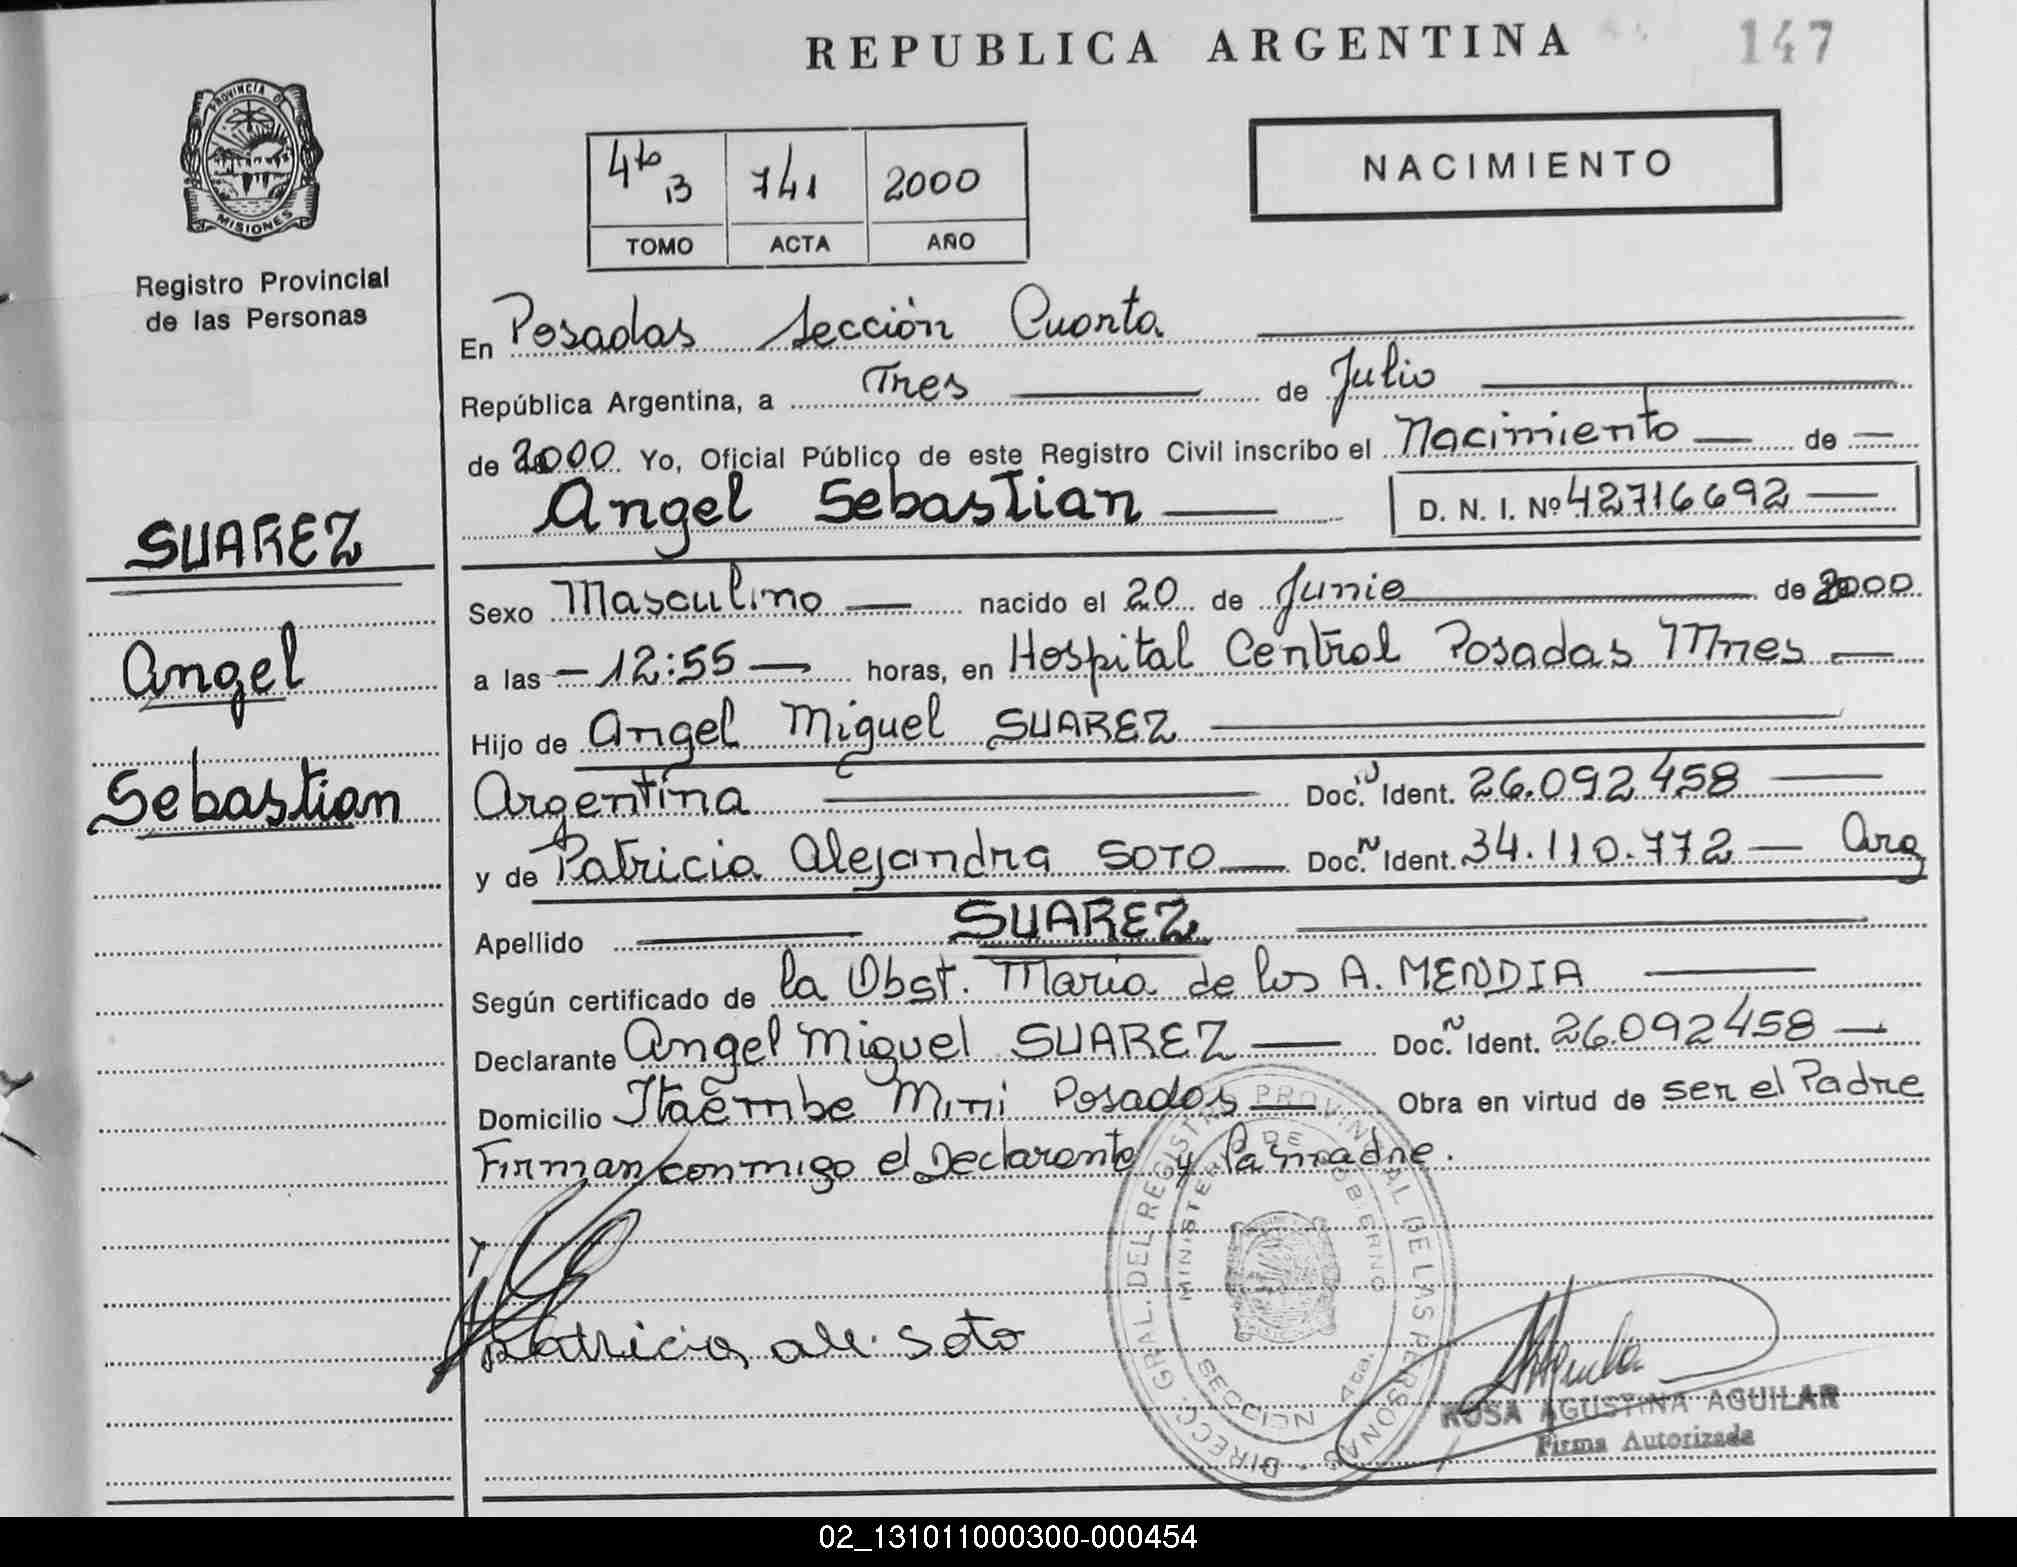 REPUBLICA ARGENTINA
147
PROVINCIA DE MISIONES
Registro Provincial
de las Personas
4to B 741 2000
TOMO ACTA AÑO
NACIMIENTO
SUAREZ
Angel
Sebastian
En Posadas Sección Cuarta
República Argentina, a Tres de Julio
de 2000 Yo, Oficial Público de este Registro Civil inscribo el Nacimiento de
Angel Sebastian D. N. I. Nº 42716692
Sexo Masculino nacido el 20 de Junio de 2000
a las 12:55 horas, en Hospital Central Posadas Mnes
Hijo de Angel Miguel SUAREZ
Argentina Doc. N Ident. 26.092458
y de Patricia Alejandra SOTO Doc. N Ident. 34.110.772 Arg
Apellido SUAREZ
Según certificado de la Obst. Maria de los A. MENDIA
Declarante Angel Miguel SUAREZ Doc. N Ident. 26.092458
Domicilio Itaēmbe Mini Posadas Obra en virtud de ser el Padre
Firman conmigo el Declarante y la madre.
Patricia ale. Soto
DIRECC. GRAL. DEL REGISTRO PROVINCIAL DE LAS PERSONAS
MINISTERIO DE GOBIERNO
SECCION 4ta.
ROSA AGUSTINA AGUILAR
Firma Autorizada
02_131011000300-000454